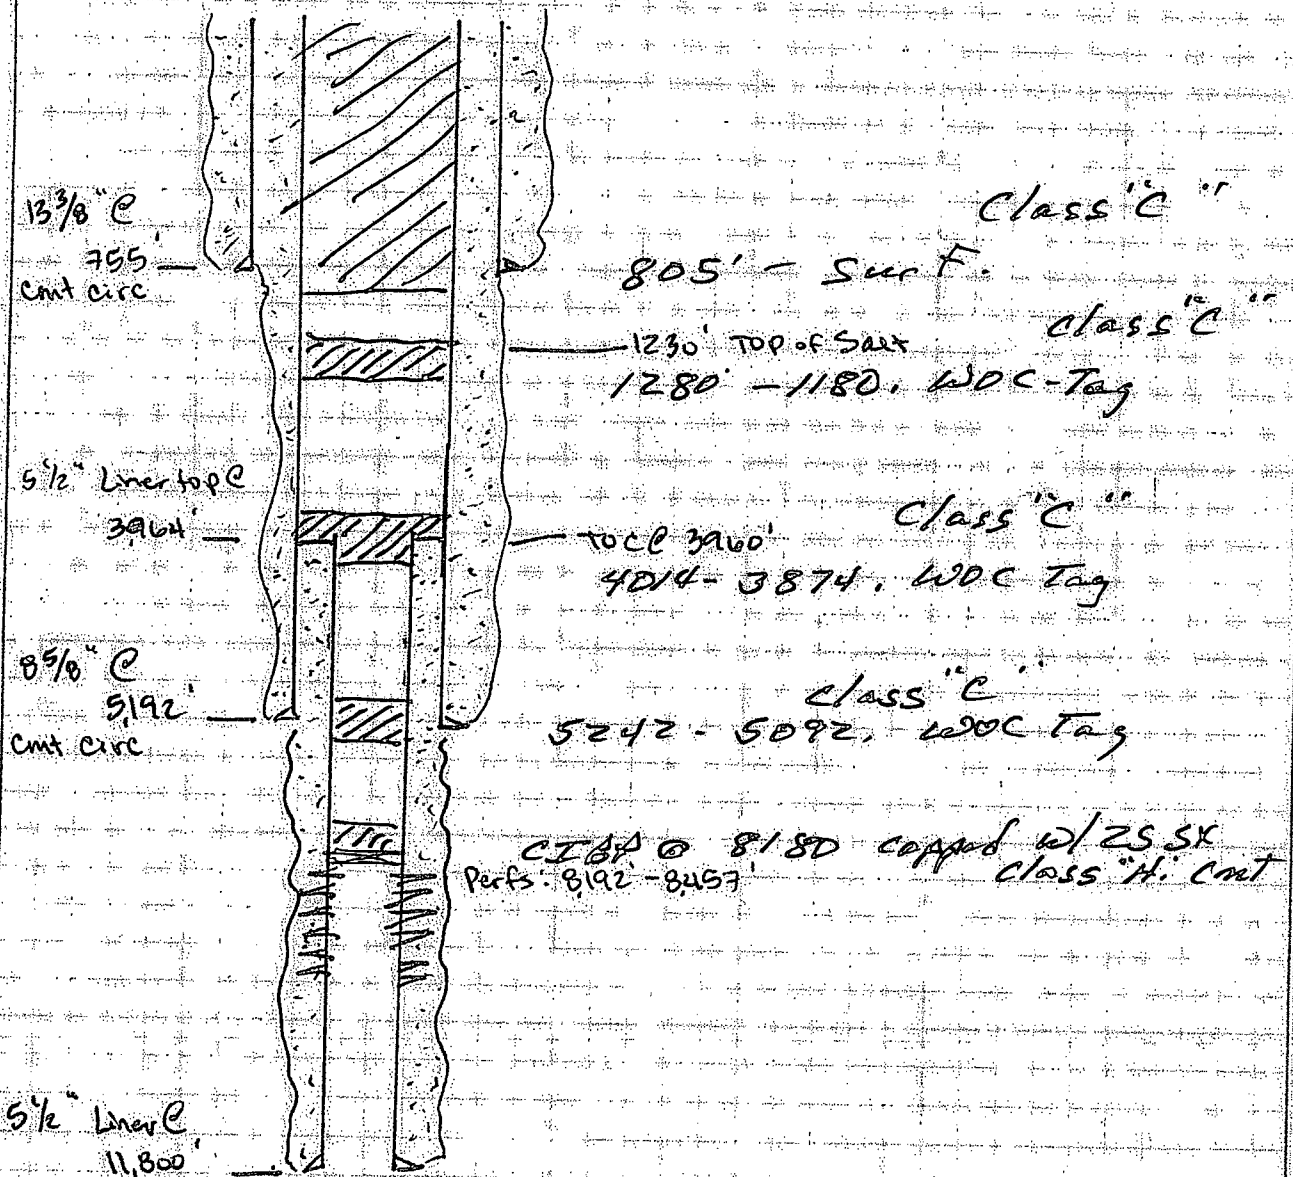 13 3/8" @
755'
cmt circ
Class "C"
805' - Surf.
class "C"
1230' Top of Salt
1280' - 1180. WOC-Tag
5 1/2" Liner top @
3964'
Class "C"
TOC @ 3960'
4014 - 3874. WOC Tag
8 5/8" @
5,192'
cmt circ
class "C"
5242 - 5092. WOC Tag
CIBP @ 8180 capped w/ 25 sx
class "H" cmt
Perfs: 8,192' - 8,457'
5 1/2" Liner @
11,800'